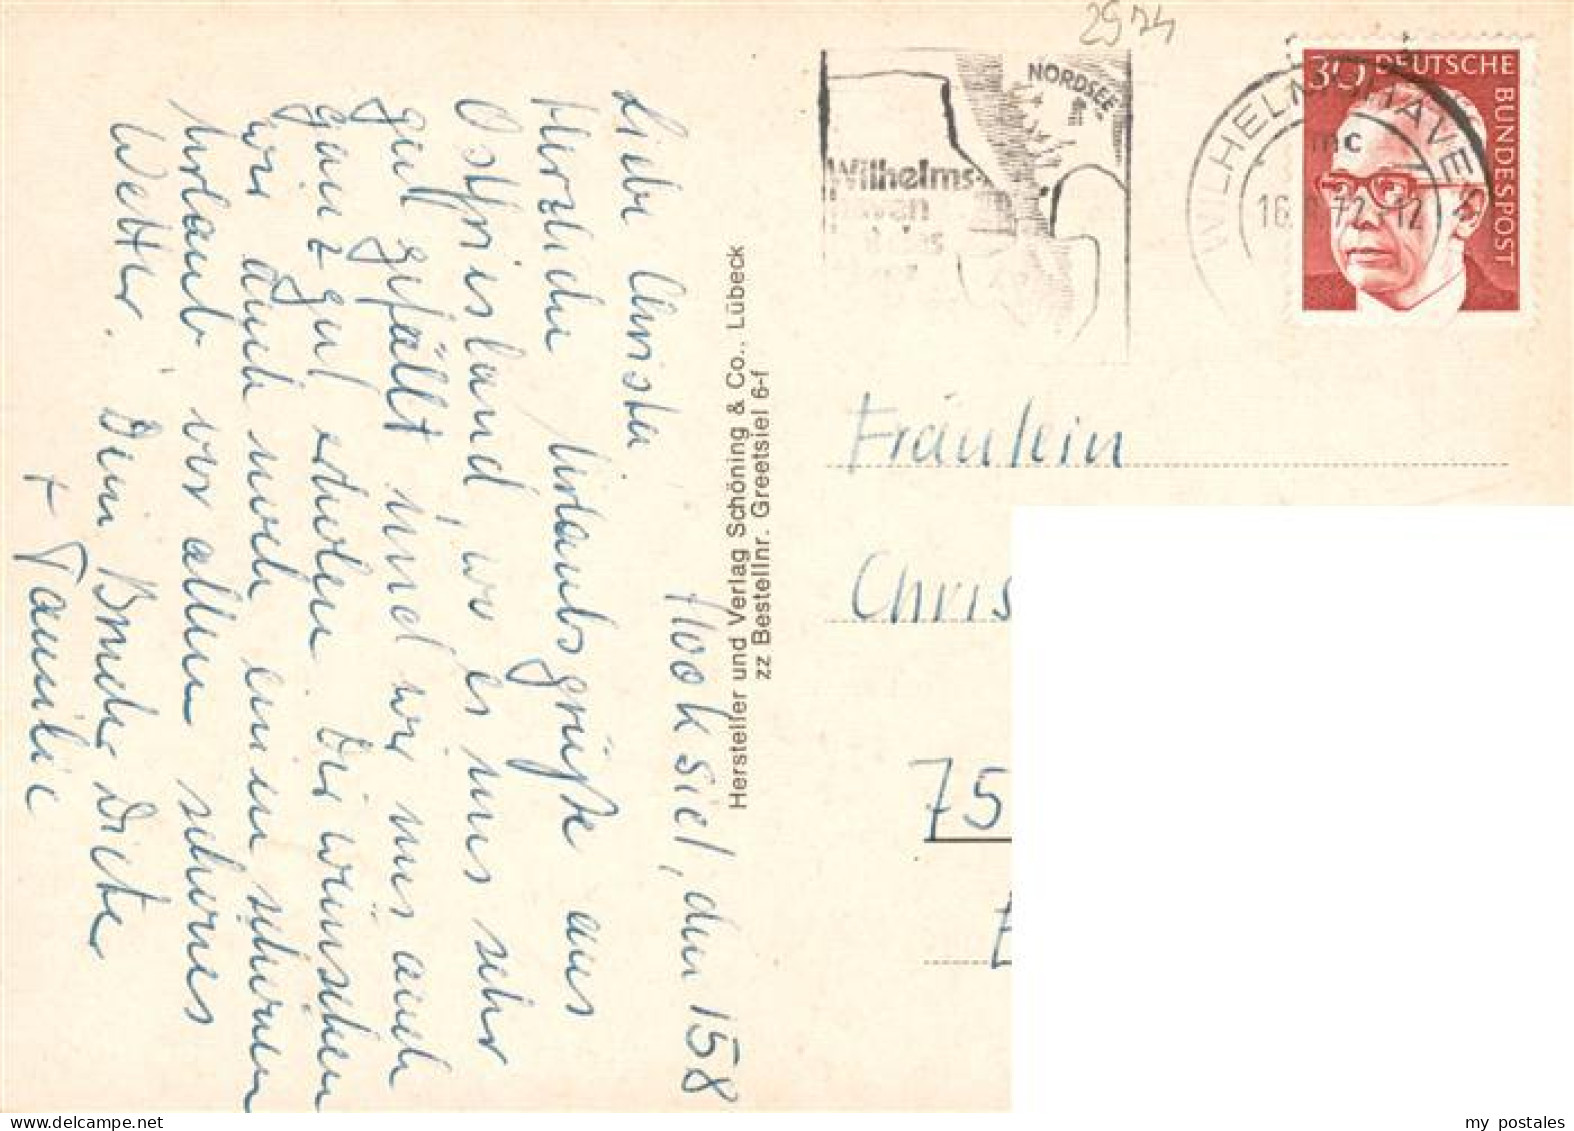 2974
NORDSEE
Wilhelms-
haven
WILHELMSHAVEN
mc
16. 72-12
30 DEUTSCHE
BUNDESPOST
Hooksiel, den 158
Liebe Christa
Herzliche Urlaubsgrüße aus
Ostfriesland, wo es uns sehr
gut gefällt und wir uns auch
ganz gut erholen. Dir wünschen
wir auch noch einen schönen
Urlaub vor allem schönes
Wetter. Dein Bruder Dieter
+ Familie
Hersteller und Verlag Schöning & Co., Lübeck
zz Bestellnr. Greetsiel 6-f
Fräulein
Chris
75
my postales